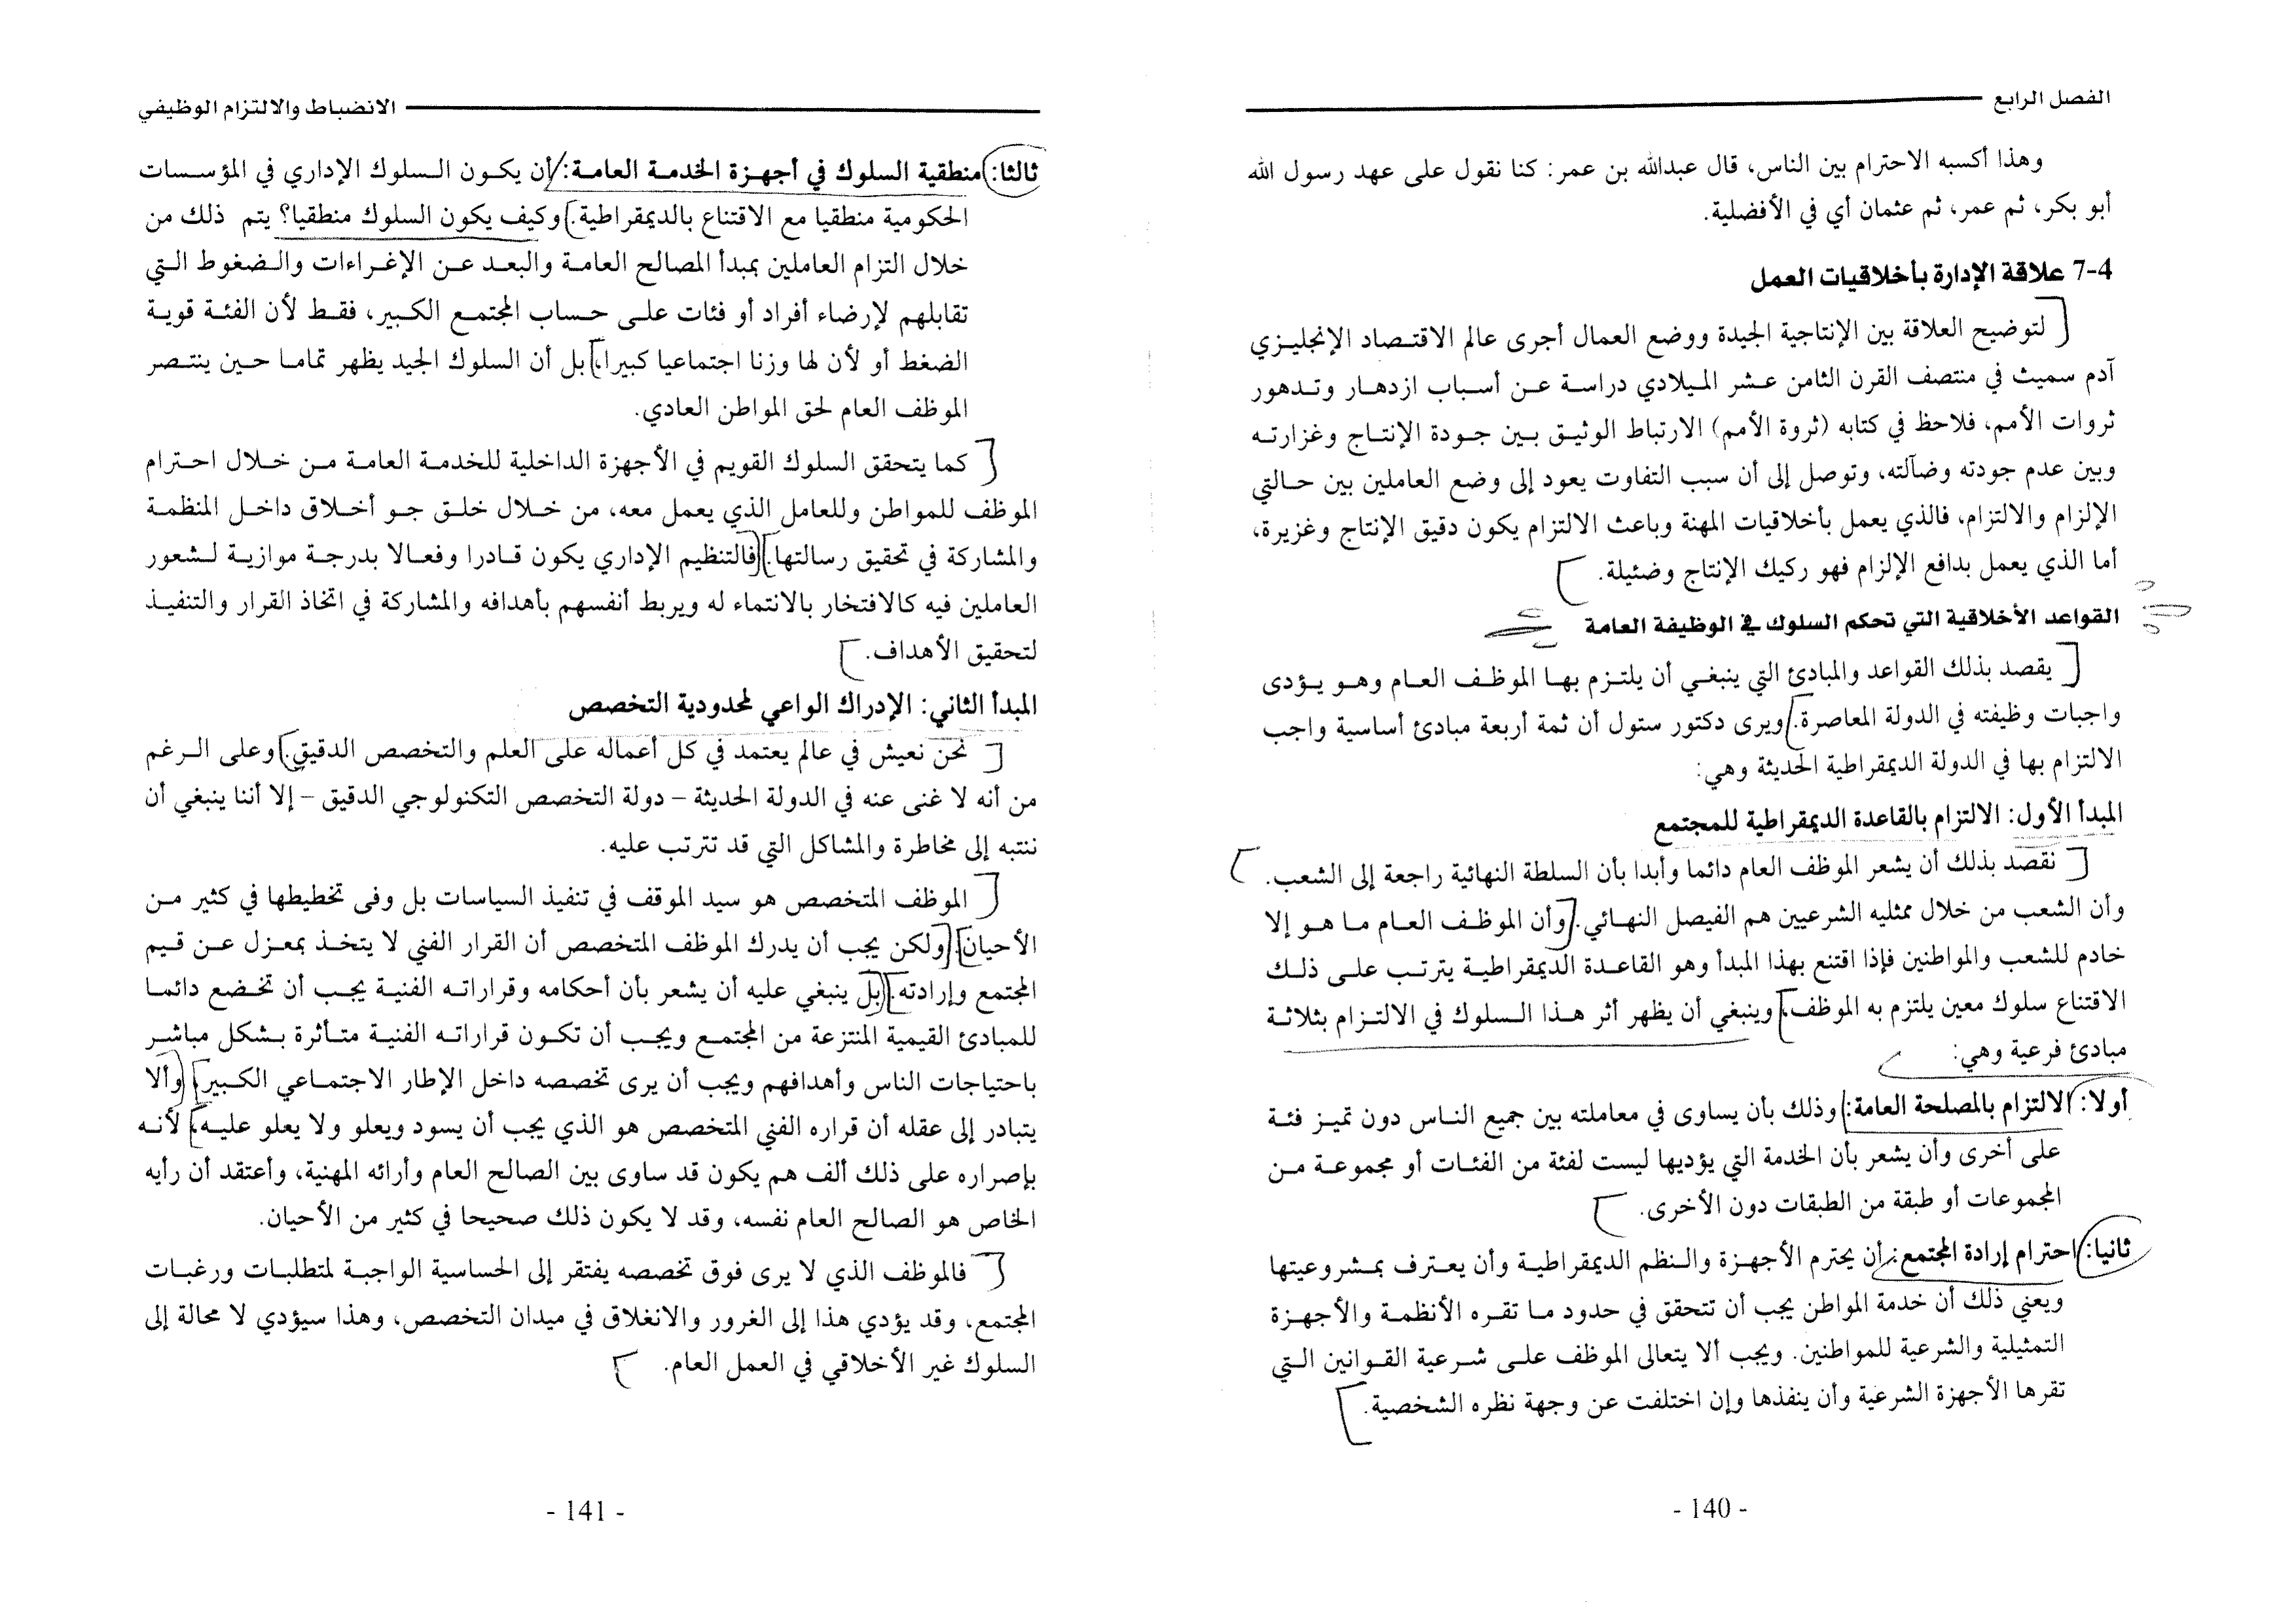 الفصل الرابع
وهذا أكسبه الاحترام بين الناس، قال عبدالله بن عمر: كنا نقول على عهد رسول الله
أبو بكر، ثم عمر، ثم عثمان أي في الأفضلية.
7-4 علاقة الإدارة بأخلاقيات العمل
لتوضيح العلاقة بين الإنتاجية الجيدة ووضع العمال أجرى عالم الاقتصاد الإنجليزي
آدم سميث في منتصف القرن الثامن عشر الميلادي دراسة عن أسباب ازدهار وتدهور
ثروات الأمم، فلاحظ في كتابه (ثروة الأمم) الارتباط الوثيق بين جودة الإنتاج وغزارته
وبين عدم جودته وضآلته، وتوصل إلى أن سبب التفاوت يعود إلى وضع العاملين بين حالتي
الإلزام والالتزام، فالذي يعمل بأخلاقيات المهنة وباعث الالتزام يكون دقيق الإنتاج وغزيرة،
أما الذي يعمل بدافع الإلزام فهو ركيك الإنتاج وضئيلة.
القواعد الأخلاقية التي تحكم السلوك في الوظيفة العامة
يقصد بذلك القواعد والمبادئ التي ينبغي أن يلتزم بها الموظف العام وهو يؤدى
واجبات وظيفته في الدولة المعاصرة. ويرى دكتور ستول أن ثمة أربعة مبادئ أساسية واجب
الالتزام بها في الدولة الديمقراطية الحديثة وهي:
المبدأ الأول: الالتزام بالقاعدة الديمقراطية للمجتمع
نقصد بذلك أن يشعر الموظف العام دائما وأبدا بأن السلطة النهائية راجعة إلى الشعب.
وأن الشعب من خلال ممثليه الشرعيين هم الفيصل النهائي. وأن الموظف العام ما هو إلا
خادم للشعب والمواطنين فإذا اقتنع بهذا المبدأ وهو القاعدة الديمقراطية يترتب على ذلك
الاقتناع سلوك معين يلتزم به الموظف، وينبغي أن يظهر أثر هذا السلوك في الالتزام بثلاثة
مبادئ فرعية وهي:
أولا: الالتزام بالمصلحة العامة: وذلك بأن يساوى في معاملته بين جميع الناس دون تميز فئة
على أخرى وأن يشعر بأن الخدمة التي يؤديها ليست لفئة من الفئات أو مجموعة من
المجموعات أو طبقة من الطبقات دون الأخرى.
ثانيا: احترام إرادة المجتمع: أن يحترم الأجهزة والنظم الديمقراطية وأن يعترف بمشروعيتها
ويعني ذلك أن خدمة المواطن يجب أن تتحقق في حدود ما تقره الأنظمة والأجهزة
التمثيلية والشرعية للمواطنين. ويجب ألا يتعالى الموظف على شرعية القوانين التي
تقرها الأجهزة الشرعية وأن ينفذها وإن اختلفت عن وجهة نظره الشخصية.
- 140 -
الانضباط والالتزام الوظيفي
ثالثا: منطقية السلوك في أجهزة الخدمة العامة: أن يكون السلوك الإداري في المؤسسات
الحكومية منطقيا مع الاقتناع بالديمقراطية. وكيف يكون السلوك منطقيا؟ يتم ذلك من
خلال التزام العاملين بمبدأ المصالح العامة والبعد عن الإغراءات والضغوط التي
تقابلهم لإرضاء أفراد أو فئات على حساب المجتمع الكبير، فقط لأن الفئة قوية
الضغط أو لأن لها وزنا اجتماعيا كبيرا، بل أن السلوك الجيد يظهر تماما حين ينتصر
الموظف العام لحق المواطن العادي.
كما يتحقق السلوك القويم في الأجهزة الداخلية للخدمة العامة من خلال احترام
الموظف للمواطن وللعامل الذي يعمل معه، من خلال خلق جو أخلاق داخل المنظمة
والمشاركة في تحقيق رسالتها. فالتنظيم الإداري يكون قادرا وفعالا بدرجة موازية لشعور
العاملين فيه كالافتخار بالانتماء له ويربط أنفسهم بأهدافه والمشاركة في اتخاذ القرار والتنفيذ
لتحقيق الأهداف.
المبدأ الثاني: الإدراك الواعي لمحدودية التخصص
نحن نعيش في عالم يعتمد في كل أعماله على العلم والتخصص الدقيق. وعلى الرغم
من أنه لا غنى عنه في الدولة الحديثة – دولة التخصص التكنولوجي الدقيق – إلا أننا ينبغي أن
ننتبه إلى مخاطرة والمشاكل التي قد تترتب عليه.
الموظف المتخصص هو سيد الموقف في تنفيذ السياسات بل وفى تخطيطها في كثير من
الأحيان. ولكن يجب أن يدرك الموظف المتخصص أن القرار الفني لا يتخذ بمعزل عن قيم
المجتمع وإرادته. بل ينبغي عليه أن يشعر بأن أحكامه وقراراته الفنية يجب أن تخضع دائما
للمبادئ القيمية المنتزعة من المجتمع ويجب أن تكون قراراته الفنية متأثرة بشكل مباشر
باحتياجات الناس وأهدافهم ويجب أن يرى تخصصه داخل الإطار الاجتماعي الكبير، وألا
يتبادر إلى عقله أن قراره الفني المتخصص هو الذي يجب أن يسود ويعلو ولا يعلو عليه، لأنه
بإصراره على ذلك ألف هم يكون قد ساوى بين الصالح العام وأرائه المهنية، وأعتقد أن رأيه
الخاص هو الصالح العام نفسه، وقد لا يكون ذلك صحيحا في كثير من الأحيان.
فالموظف الذي لا يرى فوق تخصصه يفتقر إلى الحساسية الواجبة لمتطلبات ورغبات
المجتمع، وقد يؤدي هذا إلى الغرور والانغلاق في ميدان التخصص، وهذا سيؤدي لا محالة إلى
السلوك غير الأخلاقي في العمل العام.
- 141 -